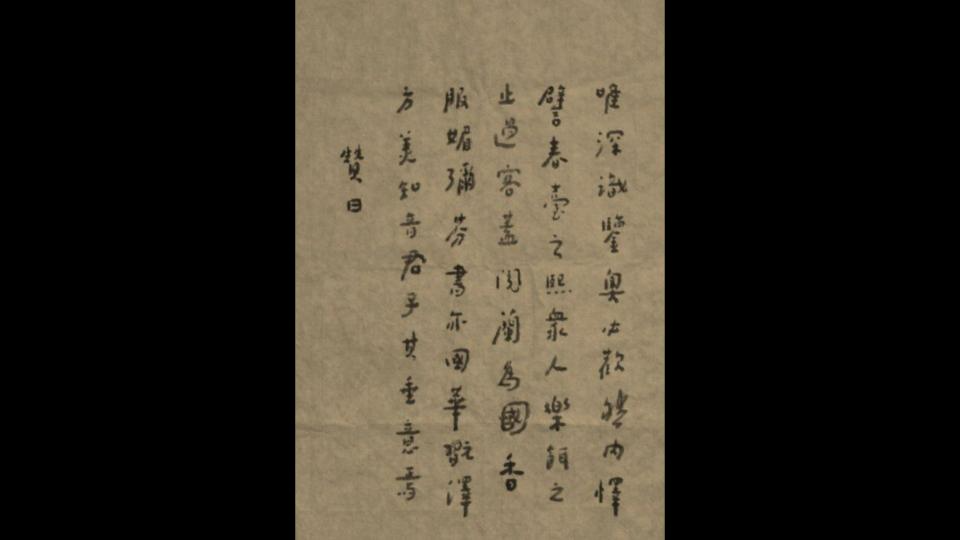 唯深識鑒奧必歡然內懌
譬春臺之熙衆人樂餌之
止過客蓋聞蘭為國香
服媚彌芬書亦國華翫澤
方美知音君子其垂意焉
贊曰